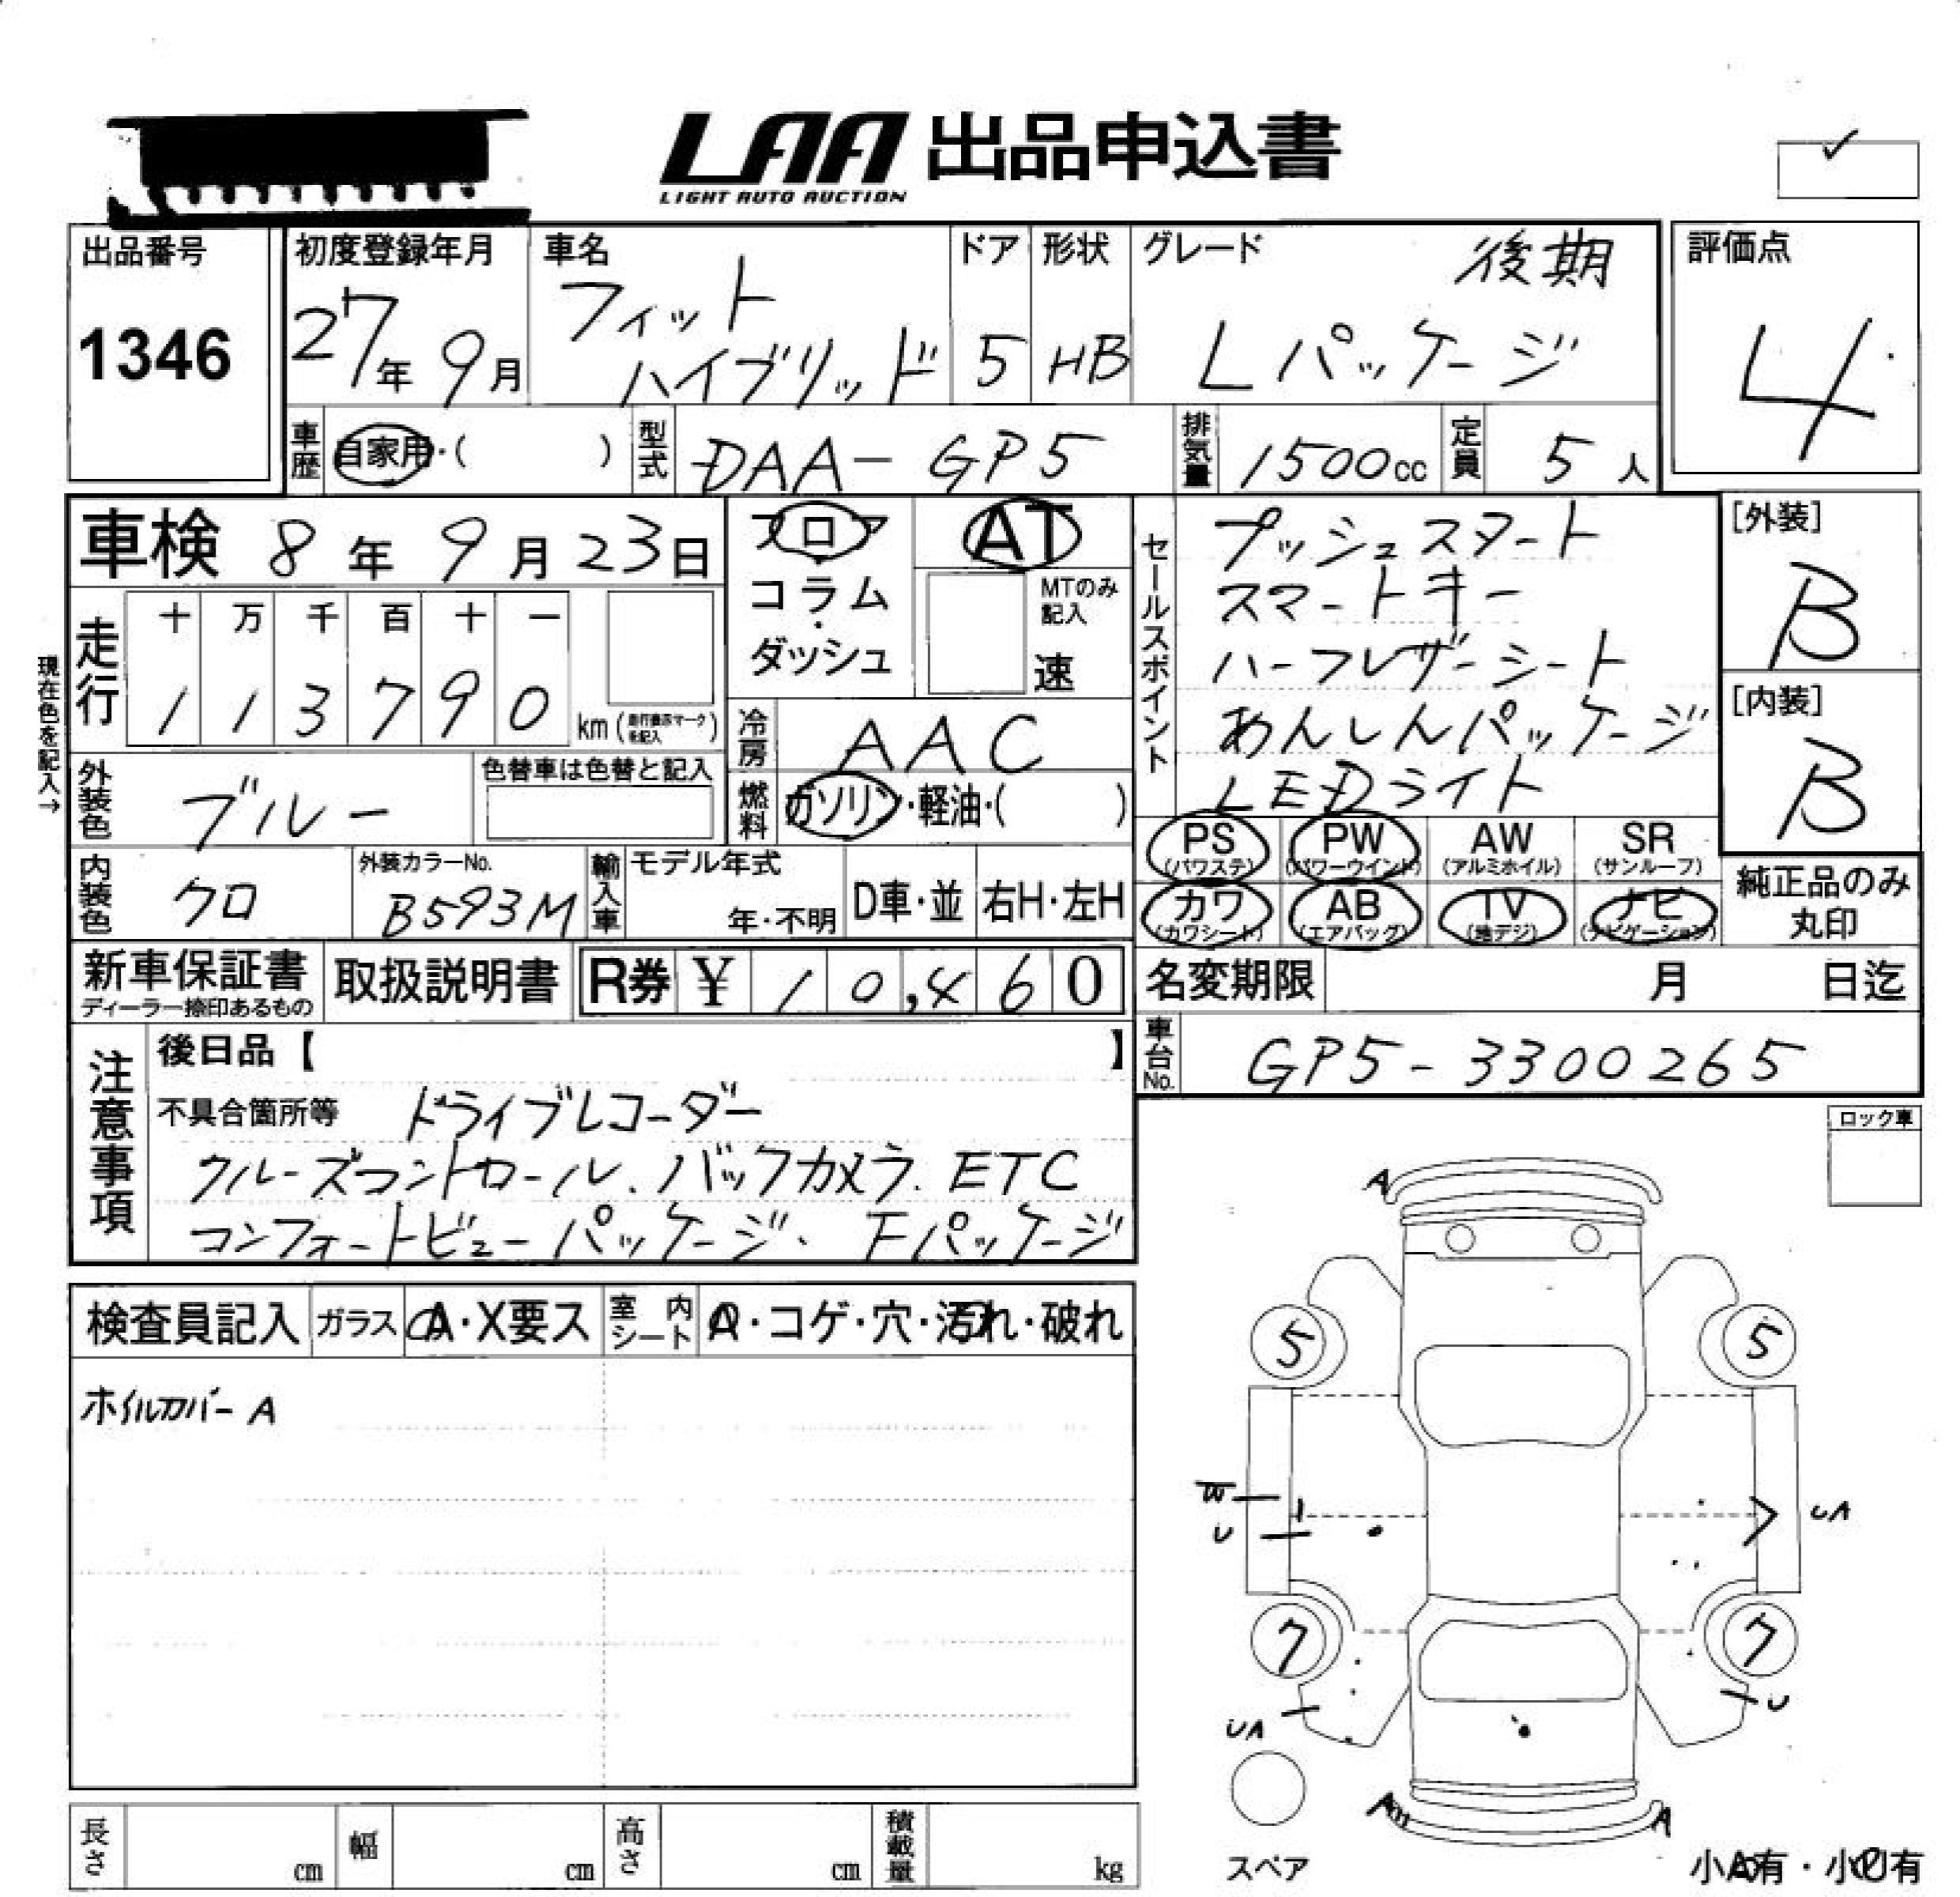 LAA 出品申込書
LIGHT AUTO AUCTION
出品番号
1346
初度登録年月
27年 9月
車名
フィット
ハイブリッド
ドア
5
形状
HB
グレード
後期
Lパッケージ
評価点
4
車歴
自家用・( )
型式
DAA-GP5
排気量
1500cc
定員
5人
車検 8年 9月 23日
フロア
コラム
・
ダッシュ
AT
MTのみ
記入
速
セールスポイント
プッシュスタート
スマートキー
ハーフレザーシート
あんしんパッケージ
LEDライト
[外装]
B
[内装]
B
現在色を記入→
走行
十 万 千 百 十 一
1 1 3 7 9 0 km
冷房
AAC
外装色
ブルー
色替車は色替と記入
燃料
ガソリン・軽油・( )
PS
(パワステ)
PW
(パワーウインド)
AW
(アルミホイル)
SR
(サンルーフ)
カワ
(カワシート)
AB
(エアバッグ)
TV
(地デジ)
ナビ
(ナビゲーション)
純正品のみ
丸印
内装色
クロ
外装カラーNo.
B593M
輸入車
モデル年式
年・不明
D車・並
右H・左H
新車保証書
ディーラー捺印あるもの
取扱説明書
R券 ¥ 10,460
名変期限 月 日迄
車台No.
GP5-3300265
注意事項
後日品【 】
不具合箇所等 ドライブレコーダー
クルーズコントロール、バックカメラ、ETC
コンフォートビューパッケージ、Fパッケージ
ロック車
検査員記入
ガラス
A・X要ス
室内シート
・コゲ・穴・汚れ・破れ
ホイルカバーA
A
5
5
W
U
UA
7
7
UA
U
A
スペア
小A有・小U有
長さ cm
幅 cm
高さ cm
積載量 kg